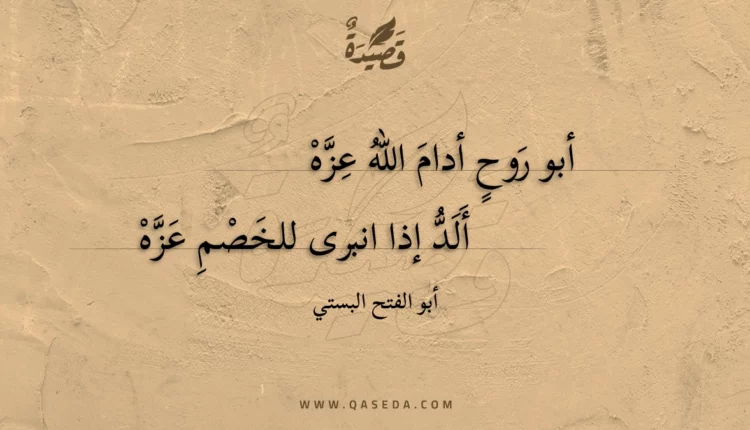 قَصِيْدَةٌ
أبو رَوحٍ أدامَ اللهُ عِزَّهْ
أَلَدُّ إذا انبرى للخَصْمِ عَزَّهْ
أبو الفتح البستي
WWW.QASEDA.COM